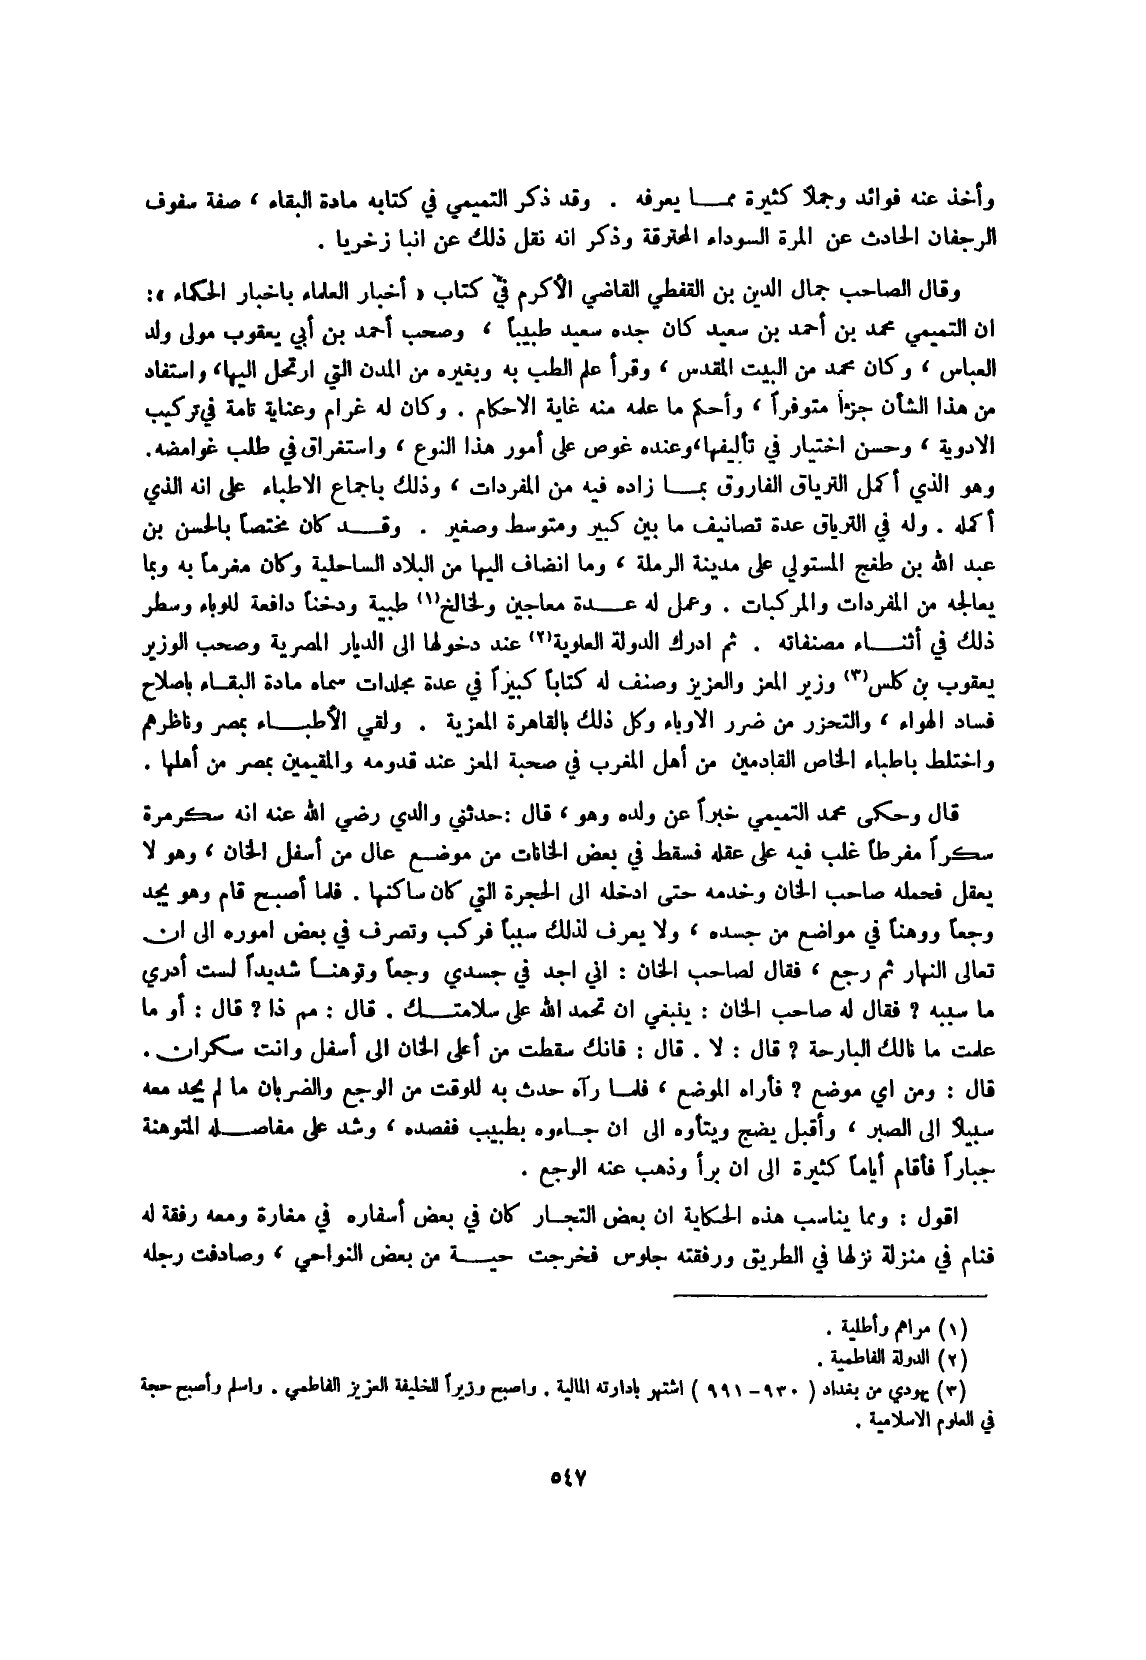 وأخذ عنه فوائد وجملاً كثيرة مما يعرفه . وقد ذكر التميمي في كتابه مادة البقاء ، صفة سفوف
الرجفان الحادث عن المرة السوداء المحترقة وذكر انه نقل ذلك عن انبا زخريا .
وقال الصاحب جمال الدين بن القفطي القاضي الأكرم في كتاب « أخبار العلماء باخبار الحكماء » :
ان التميمي محمد بن أحمد بن سعيد كان جده سعيد طبيباً ، وصحب أحمد بن أبي يعقوب مولى ولد
العباس ، وكان محمد من البيت المقدس ، وقرأ علم الطب به وبغيره من المدن التي ارتحل اليها ، واستفاد
من هذا الشأن جزءاً متوفراً ، وأحكم ما علمه منه غاية الاحكام . وكان له غرام وعناية تامة في تركيب
الادوية ، وحسن اختيار في تأليفها ، وعنده غوص على أمور هذا النوع ، واستغراق في طلب غوامضه .
وهو الذي أكمل الترياق الفاروق بما زاده فيه من المفردات ، وذلك باجماع الاطباء على انه الذي
أكمله . وله في الترياق عدة تصانيف ما بين كبير ومتوسط وصغير . وقد كان مختصاً بالحسن بن
عبد الله بن طغج المستولي على مدينة الرملة ، وما انضاف اليها من البلاد الساحلية وكان مغرماً به وبما
يعالجه من المفردات والمركبات . وعمل له عدة معاجين ولخالخ(١) طبية ودخناً دافعة للوباء وسطر
ذلك في أثناء مصنفاته . ثم ادرك الدولة العلوية(٢) عند دخولها الى الديار المصرية وصحب الوزير
يعقوب بن كلس(٣) وزير المعز والعزيز وصنف له كتاباً كبيراً في عدة مجلدات سماه مادة البقاء باصلاح
فساد الهواء ، والتحزر من ضرر الاوباء وكل ذلك بالقاهرة المعزية . ولقي الأطباء بمصر وناظرهم
واختلط باطباء الخاص القادمين من أهل المغرب في صحبة المعز عند قدومه والمقيمين بمصر من أهلها .
قال وحكى محمد التميمي خبراً عن ولده وهو ، قال : حدثني والدي رضي الله عنه انه سكر مرة
سكراً مفرطاً غلب فيه على عقله فسقط في بعض الخانات من موضع عال من أسفل الخان ، وهو لا
يعقل فحمله صاحب الخان وخدمه حتى ادخله الى الحجرة التي كان ساكنها . فلما أصبح قام وهو يجد
وجعاً ووهناً في مواضع من جسده ، ولا يعرف لذلك سبباً فركب وتصرف في بعض اموره الى ان
تعالى النهار ثم رجع ، فقال لصاحب الخان : اني اجد في جسدي وجعاً وتوهناً شديداً لست أدري
ما سببه ؟ فقال له صاحب الخان : ينبغي ان تحمد الله على سلامتك . قال : مم ذا ؟ قال : أو ما
علمت ما نالك البارحة ؟ قال : لا . قال : فانك سقطت من أعلى الخان الى أسفل وانت سكران .
قال : ومن اي موضع ؟ فأراه الموضع ، فلما رآه حدث به للوقت من الوجع والضربان ما لم يجد معه
سبيلاً الى الصبر ، وأقبل يضج ويتأوه الى ان جاءوه بطبيب ففصده ، وشد على مفاصله المتوهنة
جباراً فأقام أياماً كثيرة الى ان برأ وذهب عنه الوجع .
اقول : ومما يناسب هذه الحكاية ان بعض التجار كان في بعض أسفاره في مغارة ومعه رفقة له
فنام في منزلة نزلها في الطريق ورفقته جلوس فخرجت حية من بعض النواحي ، وصادفت رجله
(١) مراهم وأطلية .
(٢) الدولة الفاطمية .
(٣) يهودي من بغداد ( ٩٣٠ - ٩٩١ ) اشتهر بادارته المالية . واصبح وزيراً للخليفة العزيز الفاطمي . واسلم وأصبح حجة
في العلوم الاسلامية .
٥٤٧